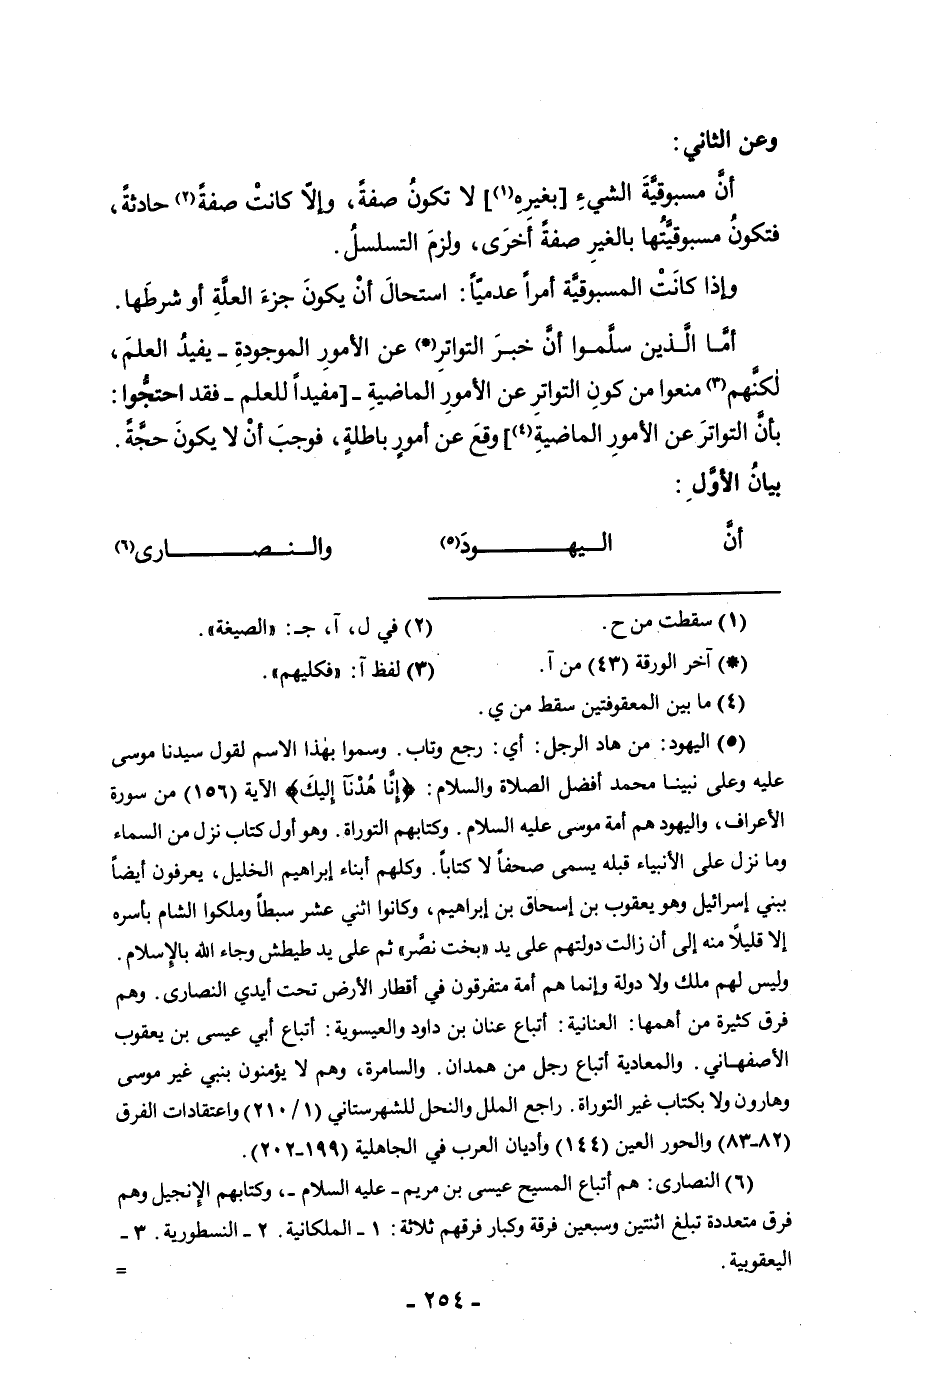 وعن الثاني :
أنَّ مسبوقيَّةَ الشيءِ [بغيرِهِ(١)] لا تكونُ صفةً، وإلّا كانتْ صفةً(٢) حادثةً،
فتكونُ مسبوقيَّتُها بالغيرِ صفةً أخرَى، ولزمَ التسلسلُ.
وإذا كانَتْ المسبوقيَّة أمراً عدميّاً: استحالَ أنْ يكونَ جزءَ العلَّةِ أو شرطَها.
أمَّا الَّذين سلَّموا أنَّ خبرَ التواترِ(*) عن الأمورِ الموجودةِ ـ يفيدُ العلمَ،
لٰكنَّهم(٣) منعوا من كونِ التواترِ عن الأمورِ الماضيةِ ـ [مفيداً للعلم ـ فقد احتجُّوا:
بأنَّ التواترَ عن الأمورِ الماضيةِ(٤)] وقعَ عن أمورٍ باطلةٍ، فوجبَ أنْ لا يكونَ حجَّةً.
بيانُ الأوَّلِ :
أنَّ اليهـودَ(٥) والنـصـارى(٦)
(١) سقطت من ح. (٢) في ل، آ، جـ: «الصيغة».
(*) آخر الورقة (٤٣) من آ. (٣) لفظ آ: «فكليهم».
(٤) ما بين المعقوفتين سقط من ي.
(٥) اليهود: من هاد الرجل: أي: رجع وتاب. وسموا بهٰذا الاسم لقول سيدنا موسى
عليه وعلى نبينا محمد أفضل الصلاة والسلام: ﴿إِنَّا هُدْنَآ إليكَ﴾ الآية (١٥٦) من سورة
الأعراف، واليهود هم أمة موسى عليه السلام. وكتابهم التوراة. وهو أول كتاب نزل من السماء
وما نزل على الأنبياء قبله يسمى صحفاً لا كتاباً. وكلهم أبناء إبراهيم الخليل، يعرفون أيضاً
ببني إسرائيل وهو يعقوب بن إسحاق بن إبراهيم، وكانوا اثني عشر سبطاً وملكوا الشام بأسره
إلا قليلاً منه إلى أن زالت دولتهم على يد «بخت نصَّر» ثم على يد طيطش وجاء الله بالإسلام.
وليس لهم ملك ولا دولة وإنما هم أمة متفرقون في أقطار الأرض تحت أيدي النصارى. وهم
فرق كثيرة من أهمها: العنانية: أتباع عنان بن داود والعيسوية: أتباع أبي عيسى بن يعقوب
الأصفهاني. والمعادية أتباع رجل من همدان. والسامرة، وهم لا يؤمنون بنبي غير موسى
وهارون ولا بكتاب غير التوراة. راجع الملل والنحل للشهرستاني (١/ ٢١٠) واعتقادات الفرق
(٨٢-٨٣) والحور العين (١٤٤) وأديان العرب في الجاهلية (١٩٩-٢٠٢).
(٦) النصارى: هم أتباع المسيح عيسى بن مريم ـ عليه السلام ـ، وكتابهم الإنجيل وهم
فرق متعددة تبلغ اثنتين وسبعين فرقة وكبار فرقهم ثلاثة: ١ ـ الملكانية. ٢ ـ النسطورية. ٣ ـ
اليعقوبية. =
ـ ٢٥٤ ـ